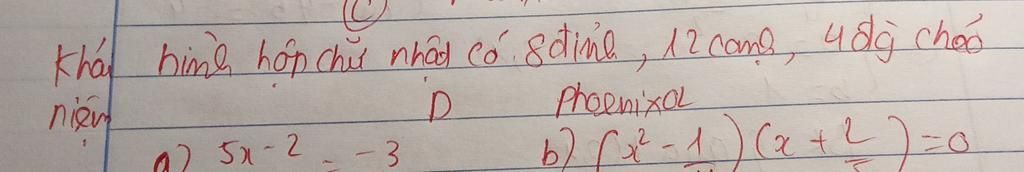 C
Khái hình hộp chữ nhật có 8 đỉnh, 12 cạnh, 4 đg chéo
niệm
D Phoenixol
a) 5x - 2 = -3 b) (x² - 1)(x + 2) = 0